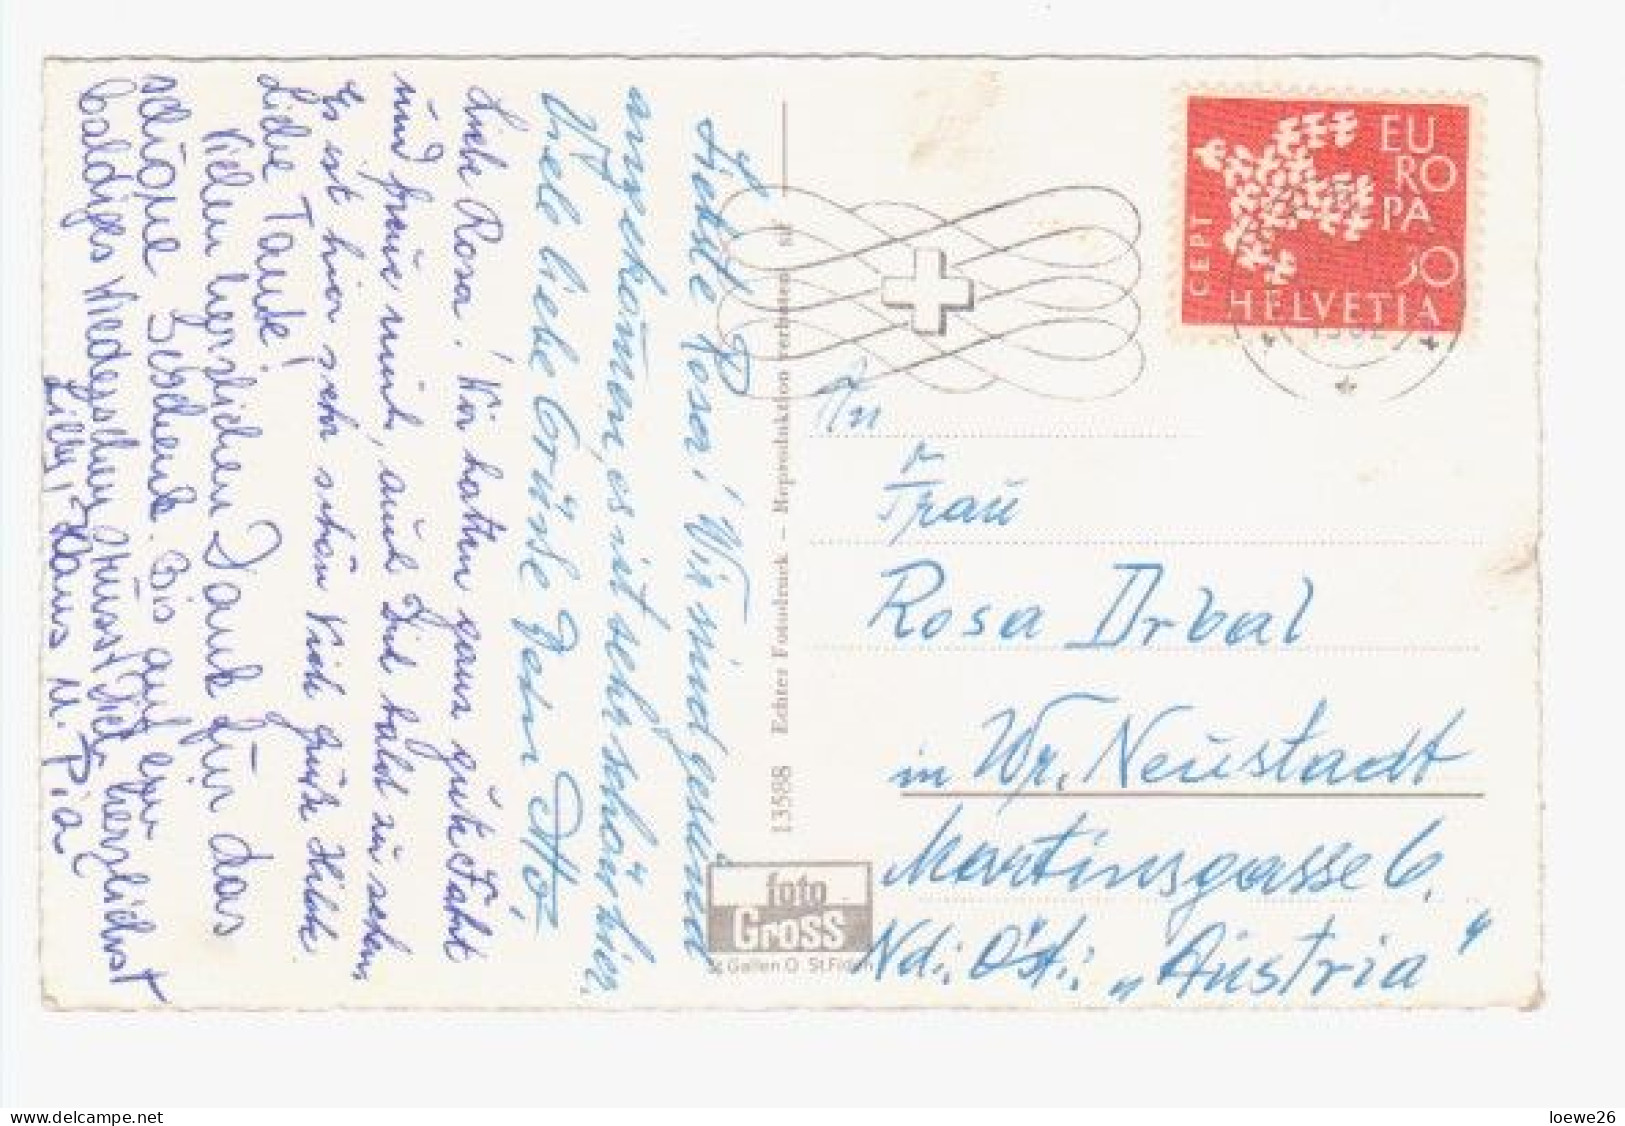 Liebste Rosa! Wir sind gesund
angekommen, es ist sehr schön hier.
Viele liebe Grüße Dein Otto
Liebe Rosa! Wir hatten ganz gute Fahrt
und freue mich, auch Dich bald zu sehen
Es ist hier sehr schön Viele Grüße Hilde
Liebe Tante!
Vielen herzlichen Dank für das
schöne Geschenk. Bis auf ein
baldiges Wiedersehen grüsst Dich herzlichst
Lilly, Klaus u. Pia
13588 Echter Fotodruck – Reproduktion verboten
foto
Gross
St. Gallen O. St. Fiden
EU
RO
PA
CEPT
50
HELVETIA
1962
An
Frau
Rosa Drbal
in Wr. Neustadt
Martinsgasse 6.
Nd. Öst. „Austria"
loewe26
www.delcampe.net